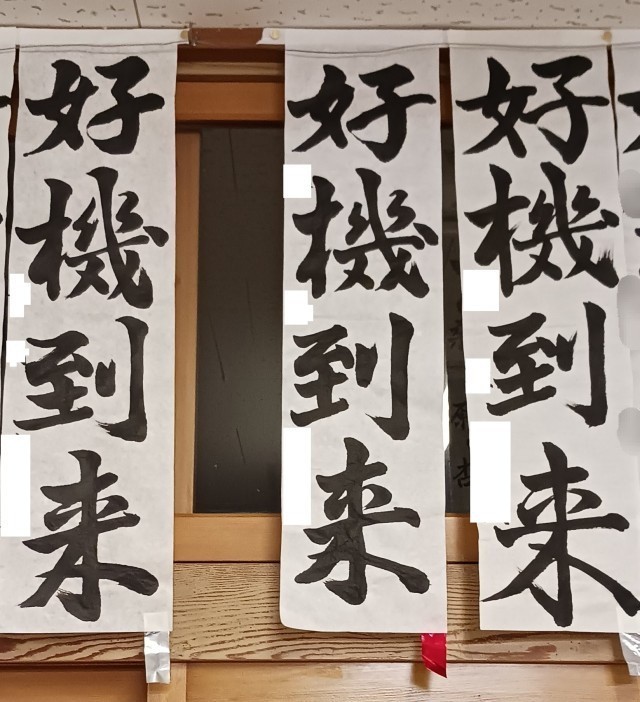 好機到来
好機到来
好機到来